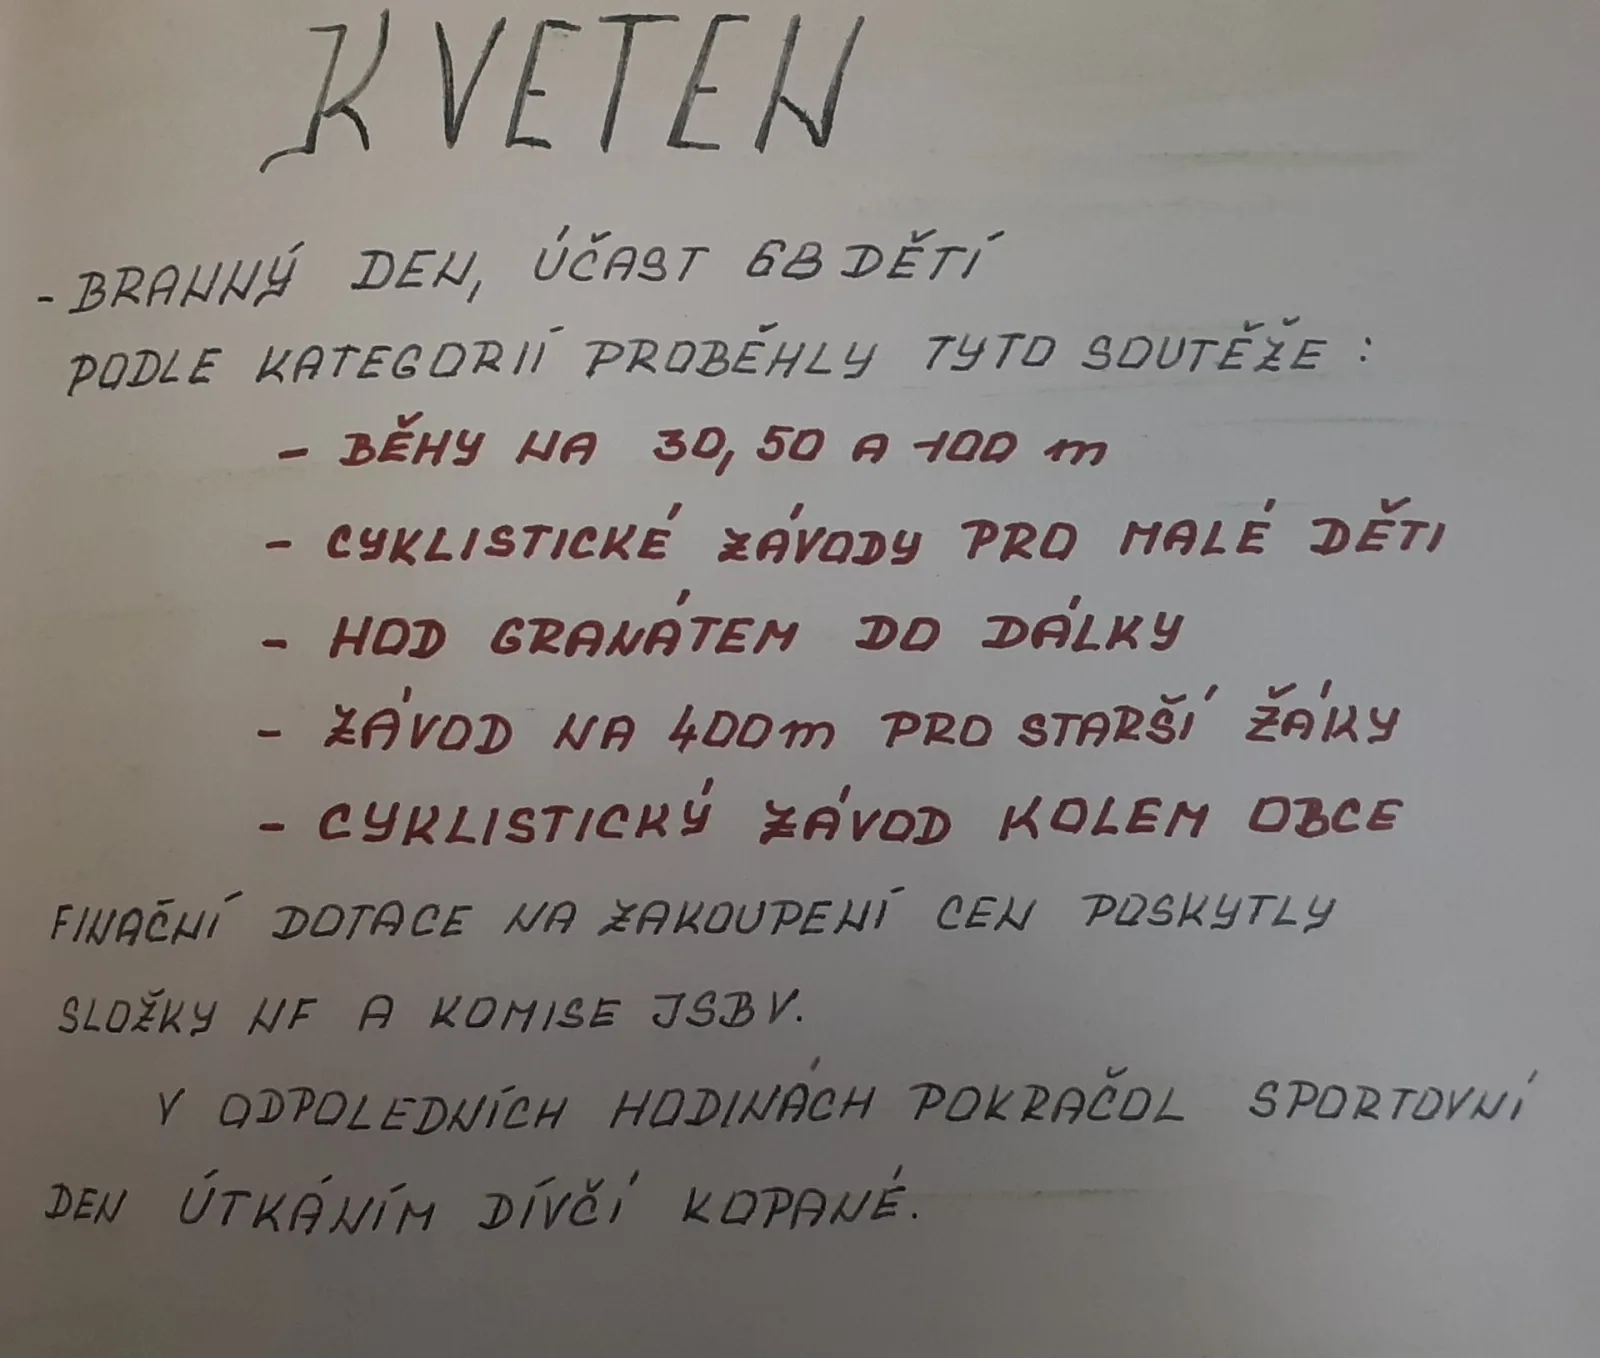 KVETEN
- BRANNÝ DEN, ÚČAST 68 DĚTÍ
PODLE KATEGORIÍ PROBĚHLY TYTO SOUTĚŽE :
- BĚHY NA 30, 50 A 100 m
- CYKLISTICKÉ ZÁVODY PRO MALÉ DĚTI
- HOD GRANÁTEM DO DÁLKY
- ZÁVOD NA 400m PRO STARŠÍ ŽÁKY
- CYKLISTICKÝ ZÁVOD KOLEM OBCE
FINAČNÍ DOTACE NA ZAKOUPENÍ CEN POSKYTLY
SLOŽKY NF A KOMISE JSBV.
V ODPOLEDNÍCH HODINÁCH POKRAČOL SPORTOVNÍ
DEN ÚTKÁNÍM DÍVČÍ KOPANÉ.